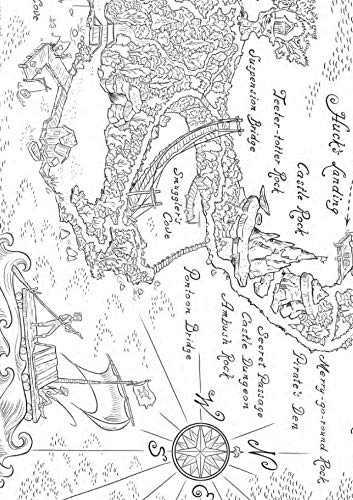 Cove
Huck's Landing
Castle Rock
Teeter-totter Rock
Suspension Bridge
Smuggler's
Cove
Merry-go-round Rock
Pirate's Den
Secret Passage
Castle Dungeon
Ambush Rock
Pontoon Bridge
N
W
S
E